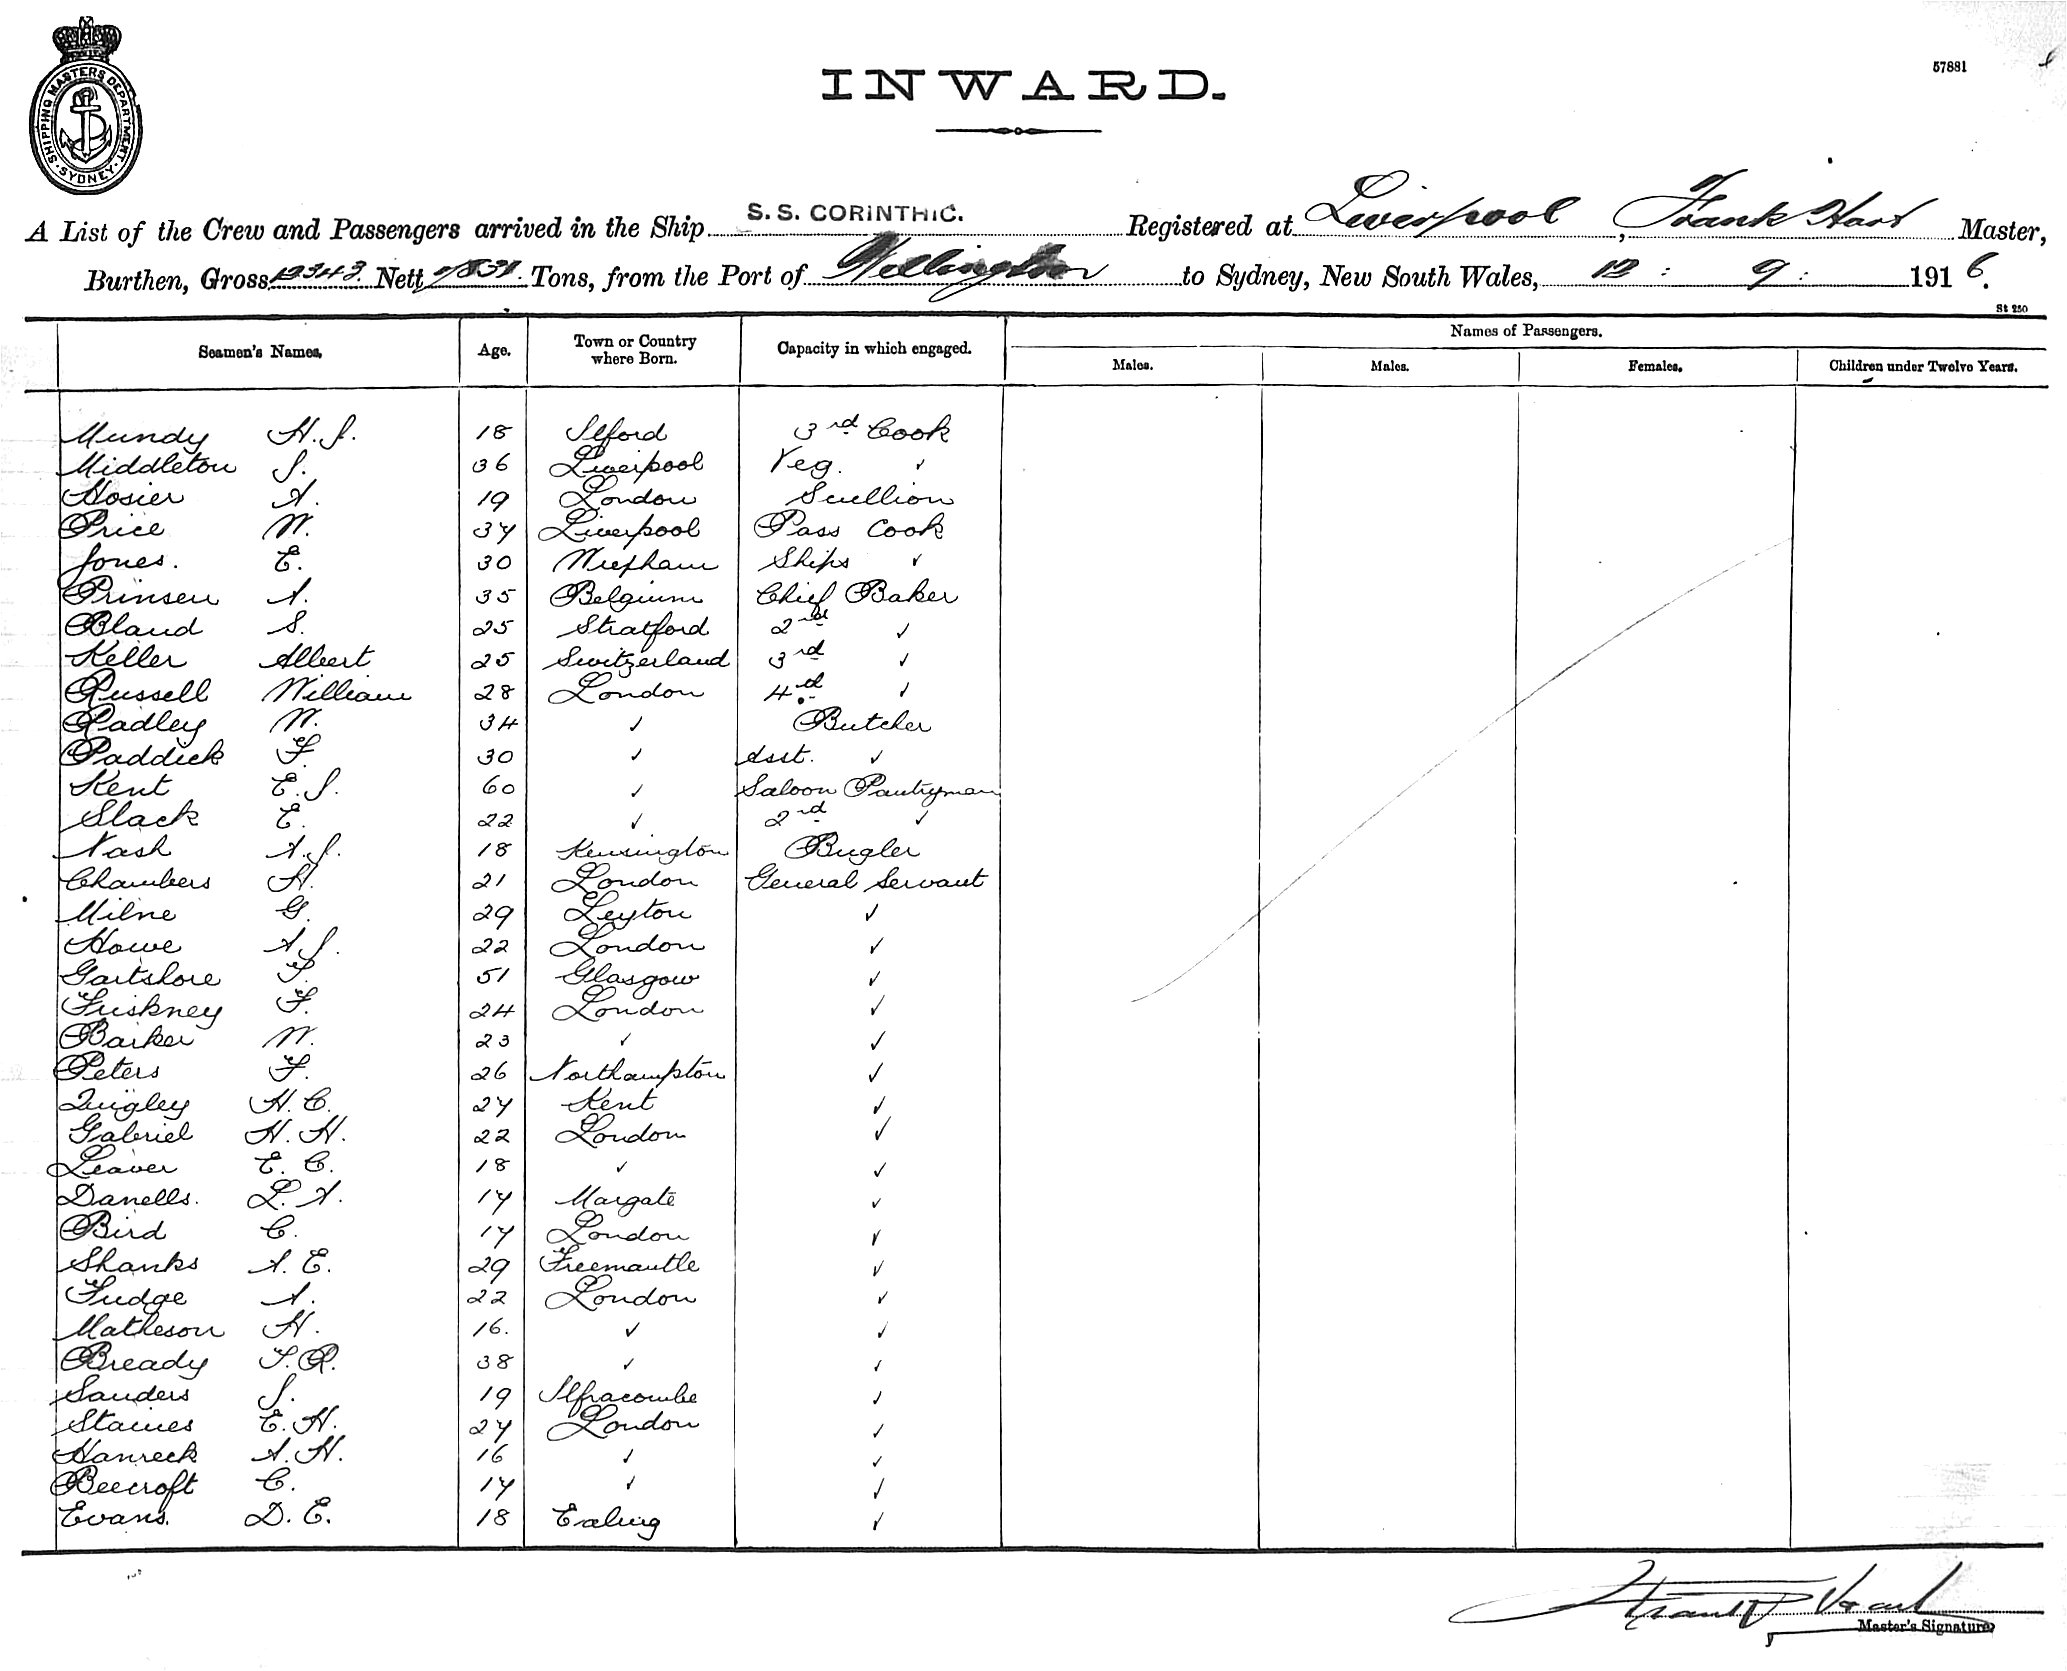 57881
SHIPPING MASTERS DEPARTMENT · SYDNEY ·
INWARD.
A List of the Crew and Passengers arrived in the Ship S. S. CORINTHIC. Registered at Liverpool, Frank Hart Master,
Burthen, Gross 12343. Nett 7831. Tons, from the Port of Wellington to Sydney, New South Wales, 12 : 9 : 1916.
St 250
Seamen's Names. Age. Town or Country where Born. Capacity in which engaged. Names of Passengers.
Males. Males. Females. Children under Twelve Years.
Mundy H. J. 18 Ilford 3rd Cook
Middleton J. 36 Liverpool Veg. ✓
Hosier A. 19 London Scullion
Price W. 37 Liverpool Pass Cook
Jones. E. 30 Ships ✓
Prinsen A. 35 Belgium Chief Baker
Bland S. 25 Stratford 2nd ✓
Keller Albert 25 Switzerland 3rd ✓
Russell William 28 London 4th ✓
Radley W. 34 ✓ Butcher
Paddick F. 30 ✓ Asst. ✓
Kent E. J. 60 ✓ Saloon Pantryman
Slack E. 22 ✓ 2nd ✓
Nash A. J. 18 Kensington Bugler
Chambers H. 21 London General Servant
Milne G. 29 Leyton ✓
Howe A. J. 22 London ✓
Gartshore T. 51 Glasgow ✓
Friskney F. 24 London ✓
Barker W. 23 ✓ ✓
Peters F. 26 Northampton ✓
Quigley H. C. 27 Kent ✓
Gabriel H. H. 22 London ✓
Leaver E. C. 18 ✓ ✓
Danells. L. A. 17 Margate ✓
Bird C. 17 London ✓
Shanks A. E. 29 Freemantle ✓
Fudge A. 22 London ✓
Matheson H. 16. ✓ ✓
Bready T. R. 38 ✓ ✓
Sanders J. 19 Ilfracombe ✓
Staines E. H. 27 London ✓
Hanreck A. H. 16 ✓ ✓
Beecroft C. 17 ✓ ✓
Evans. D. E. 18 Ealing ✓
Frank Hart
Master's Signature